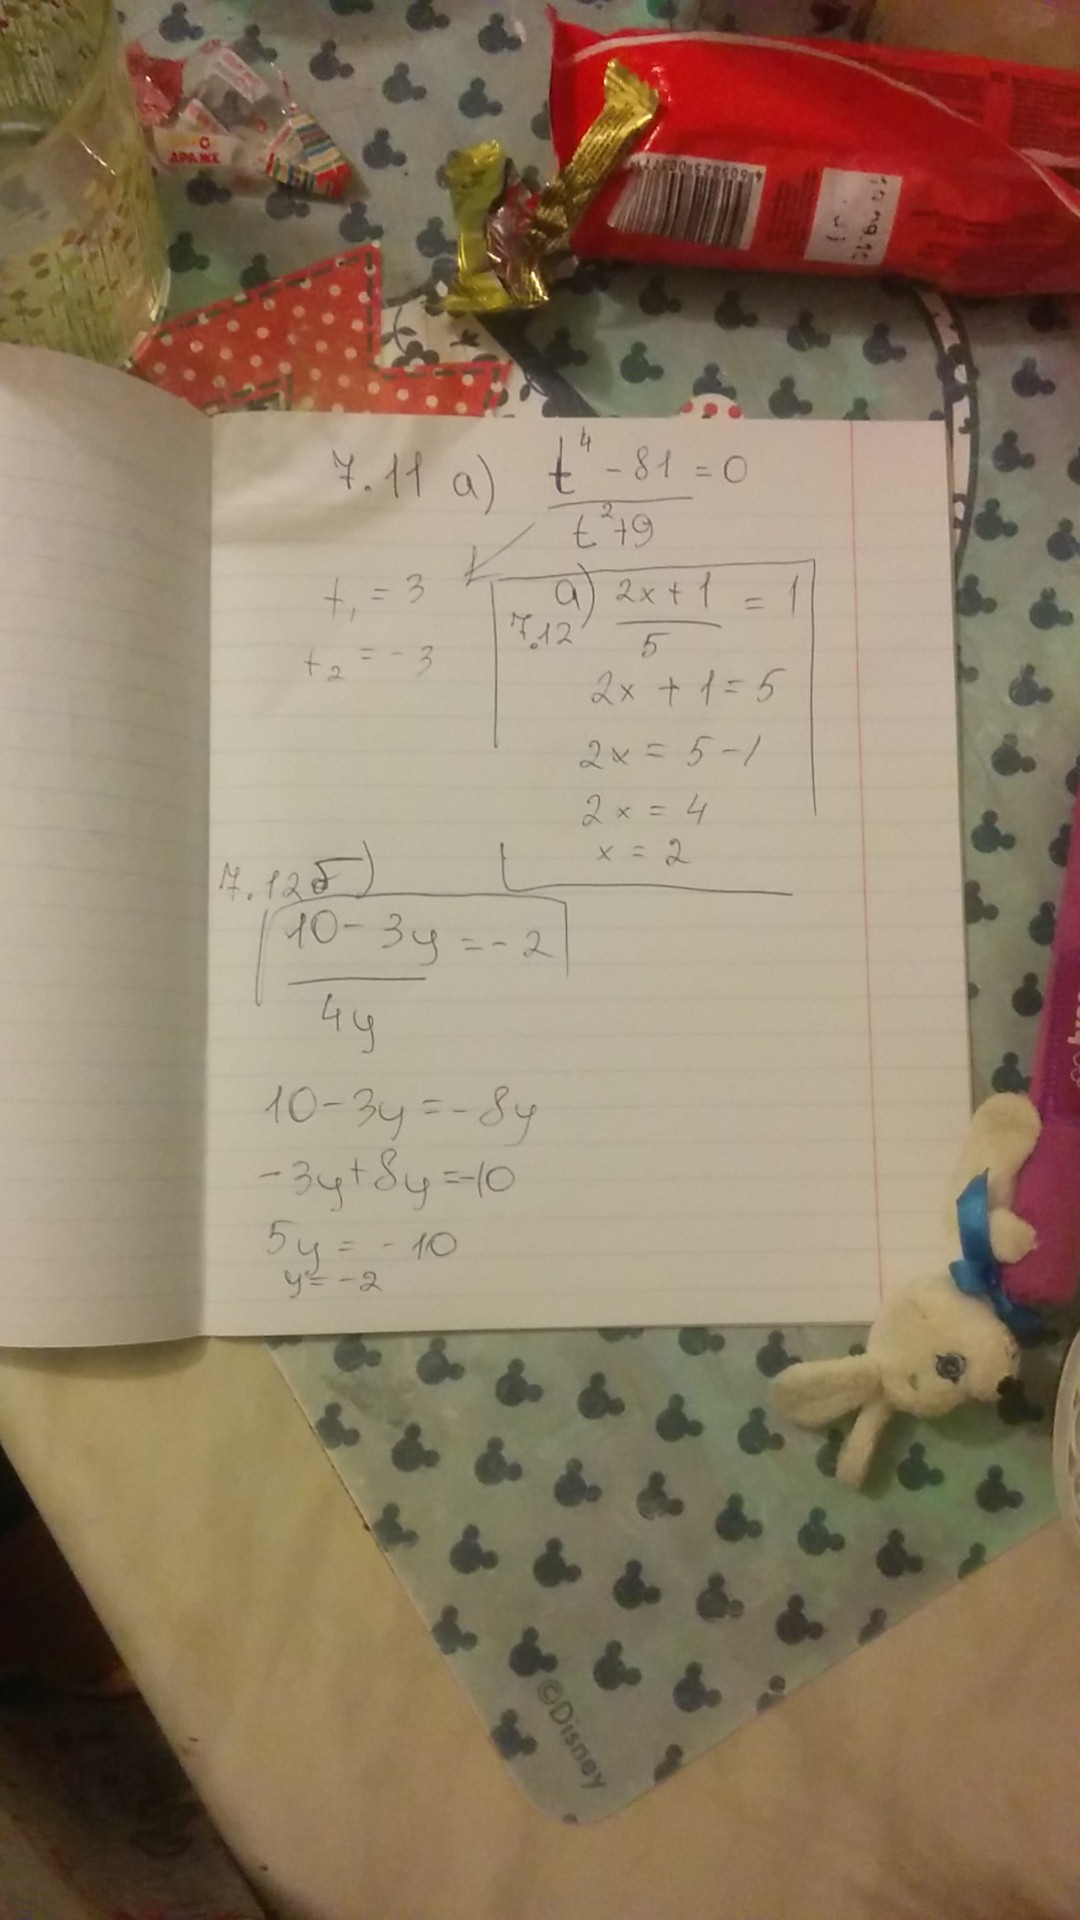 ДРАЖЕ
7.11 а) t⁴ - 81 = 0
t² + 9
t₁ = 3
t₂ = - 3
7.12 а) 2x + 1 = 1
5
2x + 1 = 5
2x = 5 - 1
2x = 4
x = 2
7.12 б)
10 - 3y = - 2
4y
10 - 3y = - 8y
- 3y + 8y = -10
5y = - 10
y = -2
©Disney